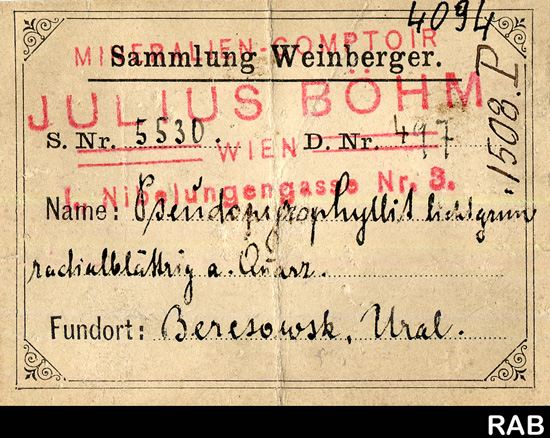 4094
MINERALIEN-COMPTOIR
Sammlung Weinberger.
JULIUS BÖHM
1508.P
S. Nr. 5530. D. Nr. 497
WIEN
I. Nibelungengasse Nr. 3.
Name: Pseudopyrophyllit lichtgrun
radialblättrig a. Quarz.
Fundort: Beresowsk, Ural.
RAB